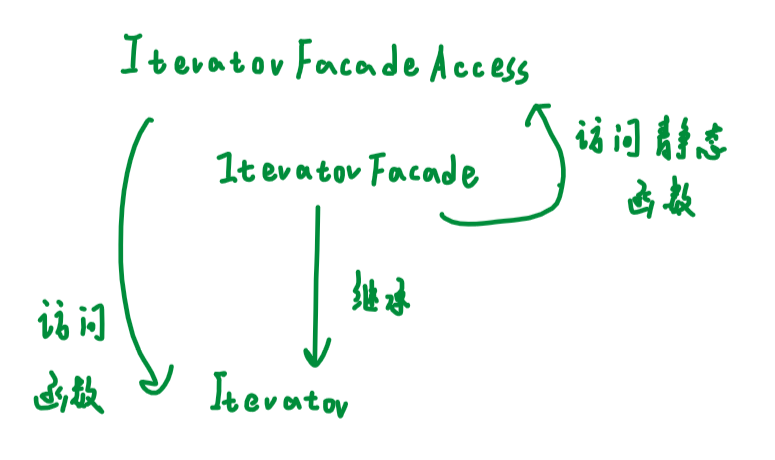 IteratorFacadeAccess
访问静态
函数
IteratorFacade
继承
访问
函数
Iterator